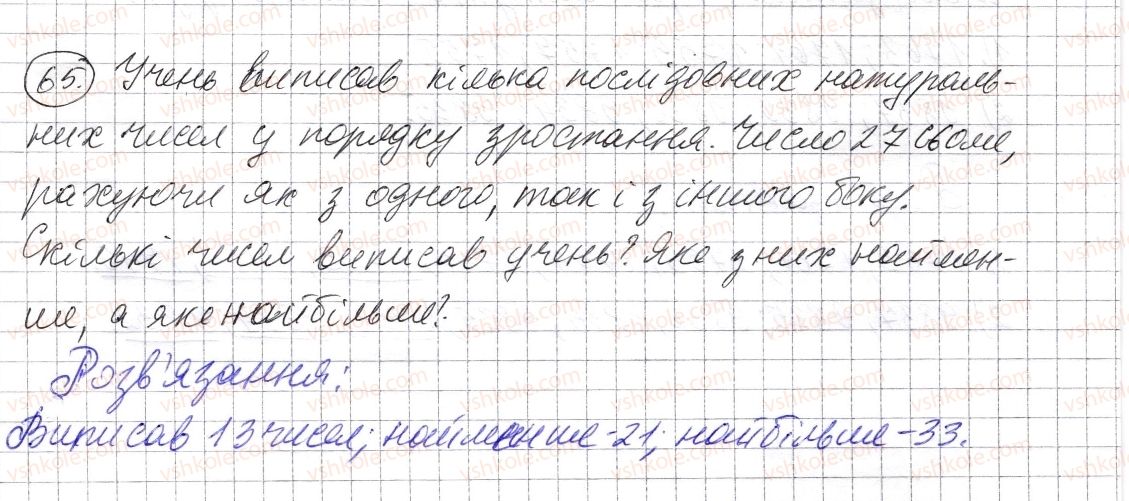 65. Учень виписав кілька послідовних натураль-
них чисел у порядку зростання. Число 27 сьоме,
рахуючи як з одного, так і з іншого боку.
Скількі чисел виписав учень? Яке з них наймен-
ше, а яке найбільше?
Розв'язання:
Виписав 13 чисел; найменше - 21; найбільше - 33.